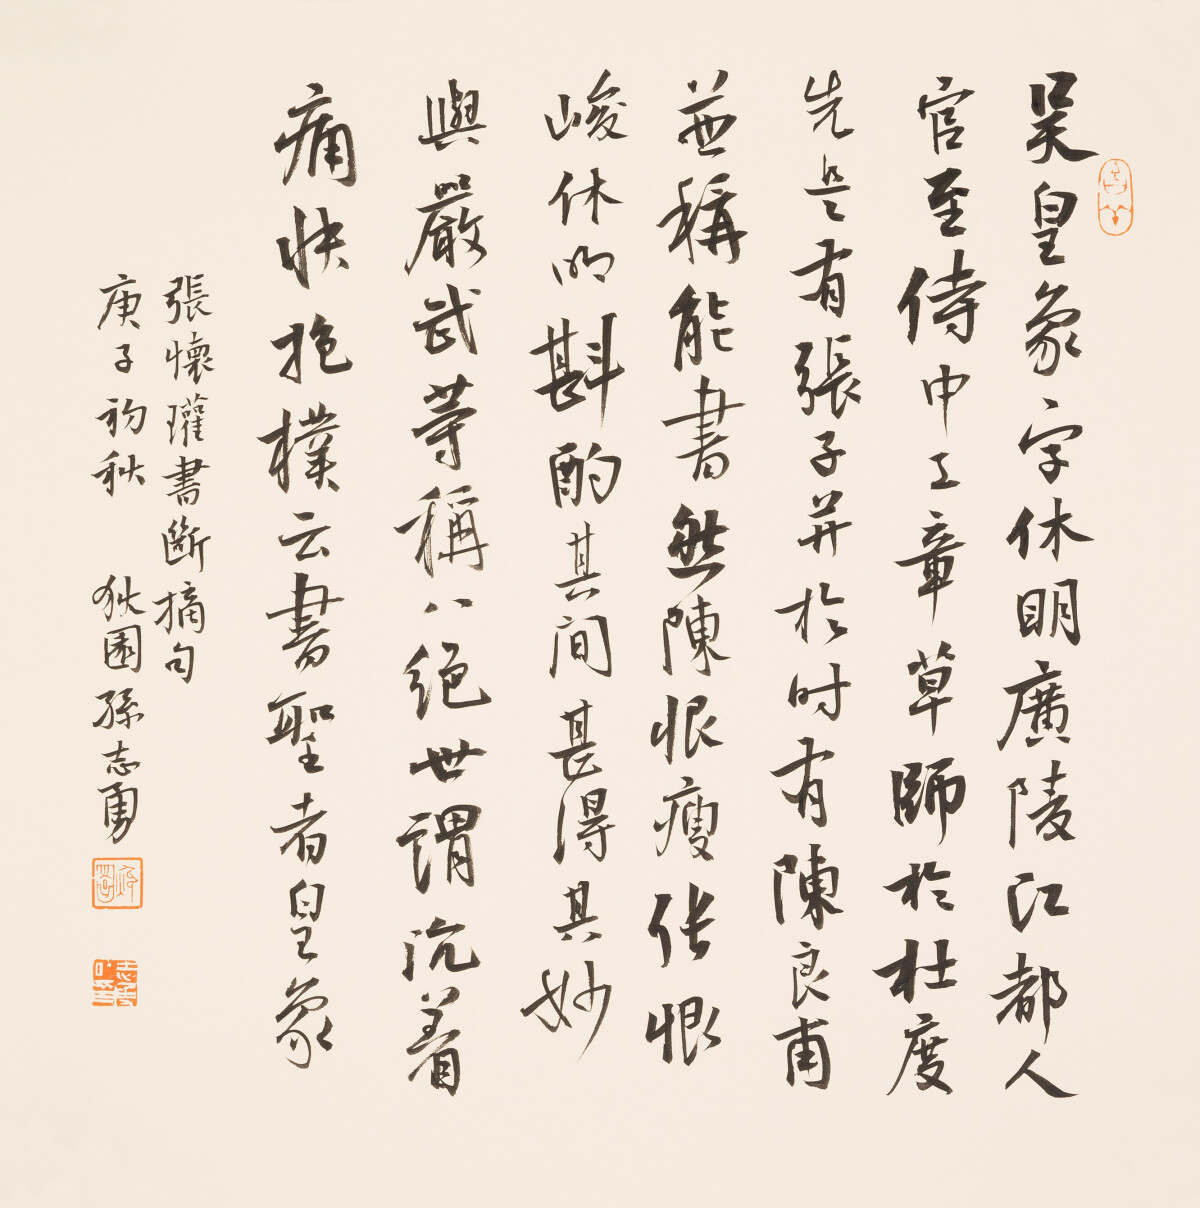 吴皇象字休明廣陵江都人
官至侍中工章草師於杜度
先是有張子並於时有陳良甫
並稱能書然陳恨瘦张恨
峻休明斟酌其间甚得其妙
與嚴武等稱八絕世謂沉着
痛快抱樸云書聖者皇象
張懷瓘書斷摘句
庚子初秋 狄園孫志勇